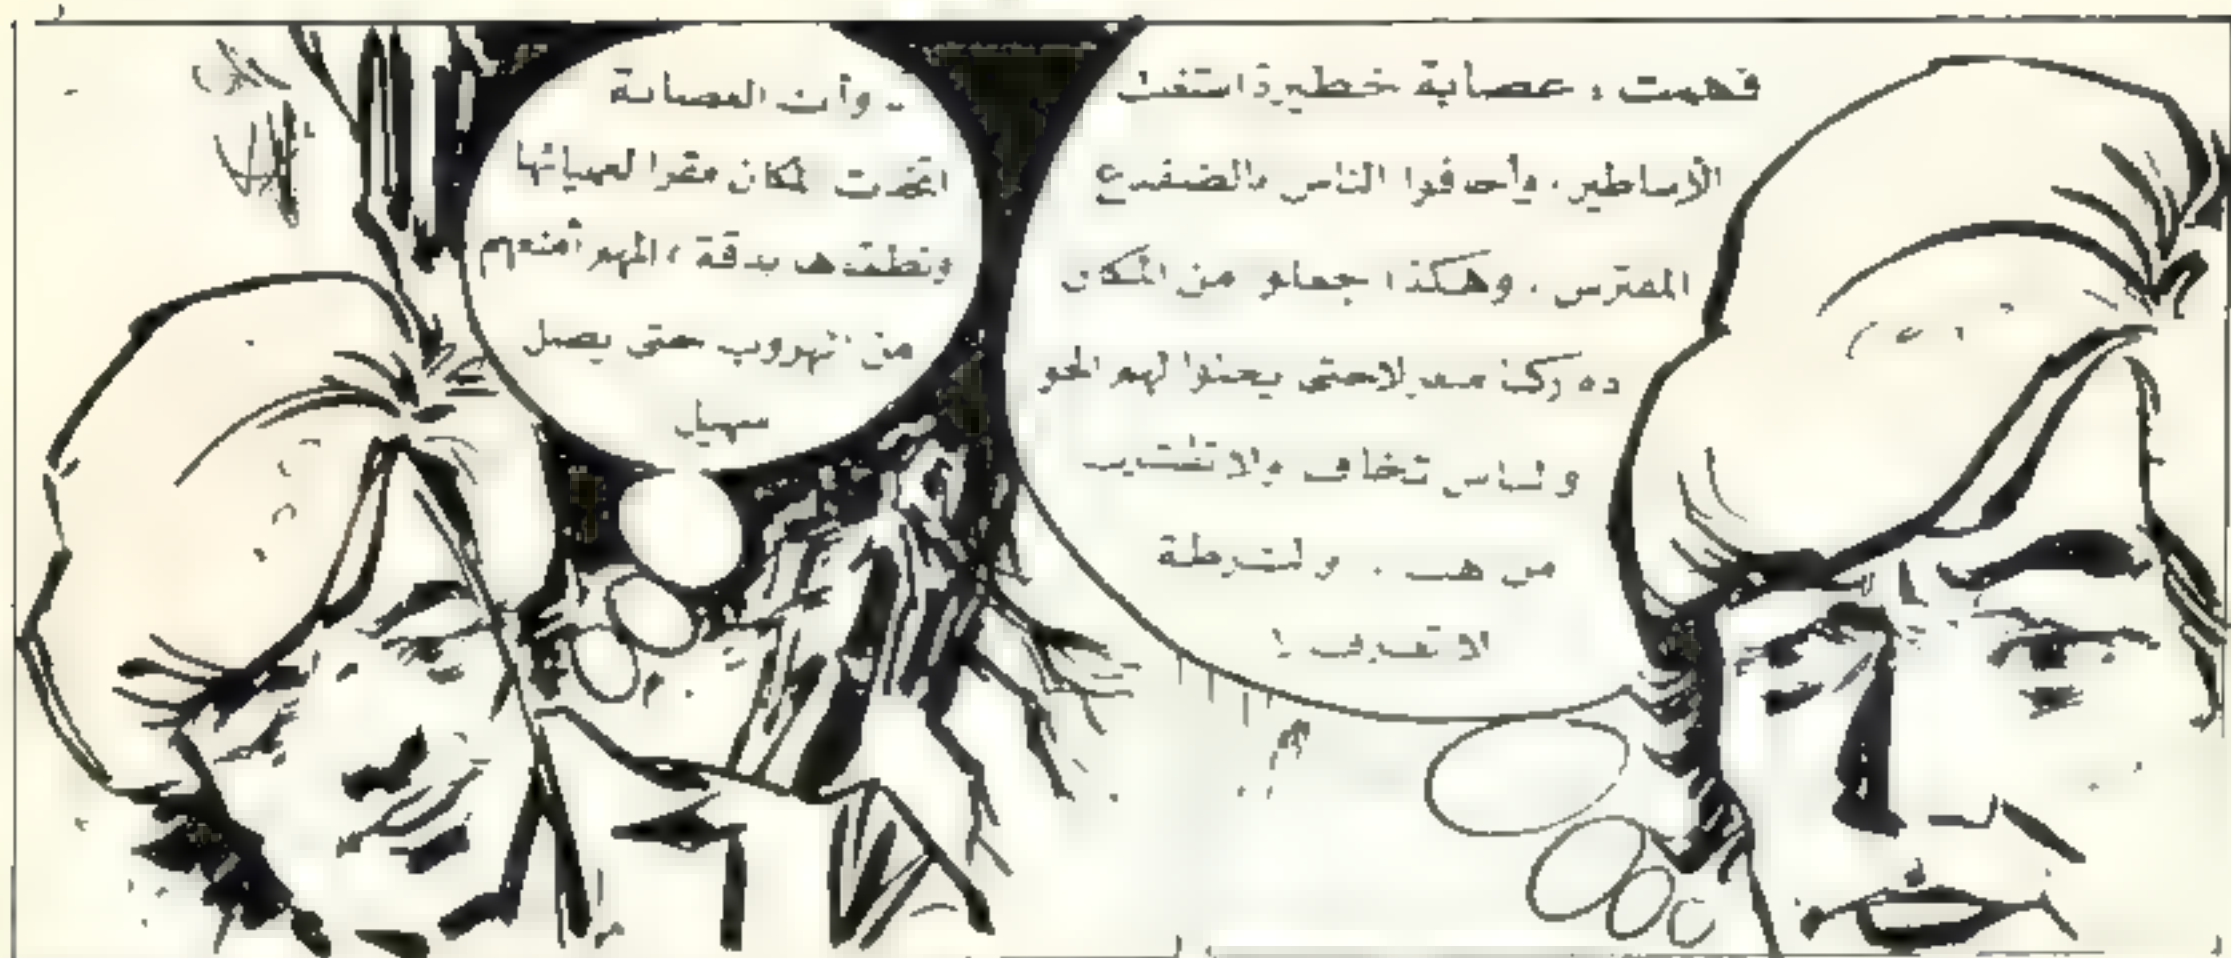 فهمت، عصابة خطيرة استغلت
الأساطير، وأخافوا الناس بالضفدع
المفترس، وهكذا جعلو من المكان
ده حتى لهم الجو
والناس تخاف ولا تقترب
من هنا، والشرطة
لا تعرف!
.. وأن العصابة
اتخذت المكان مقرا لعملياتها
بدقة، المهم أمنعهم
من الهروب حتى يصل
سهيل